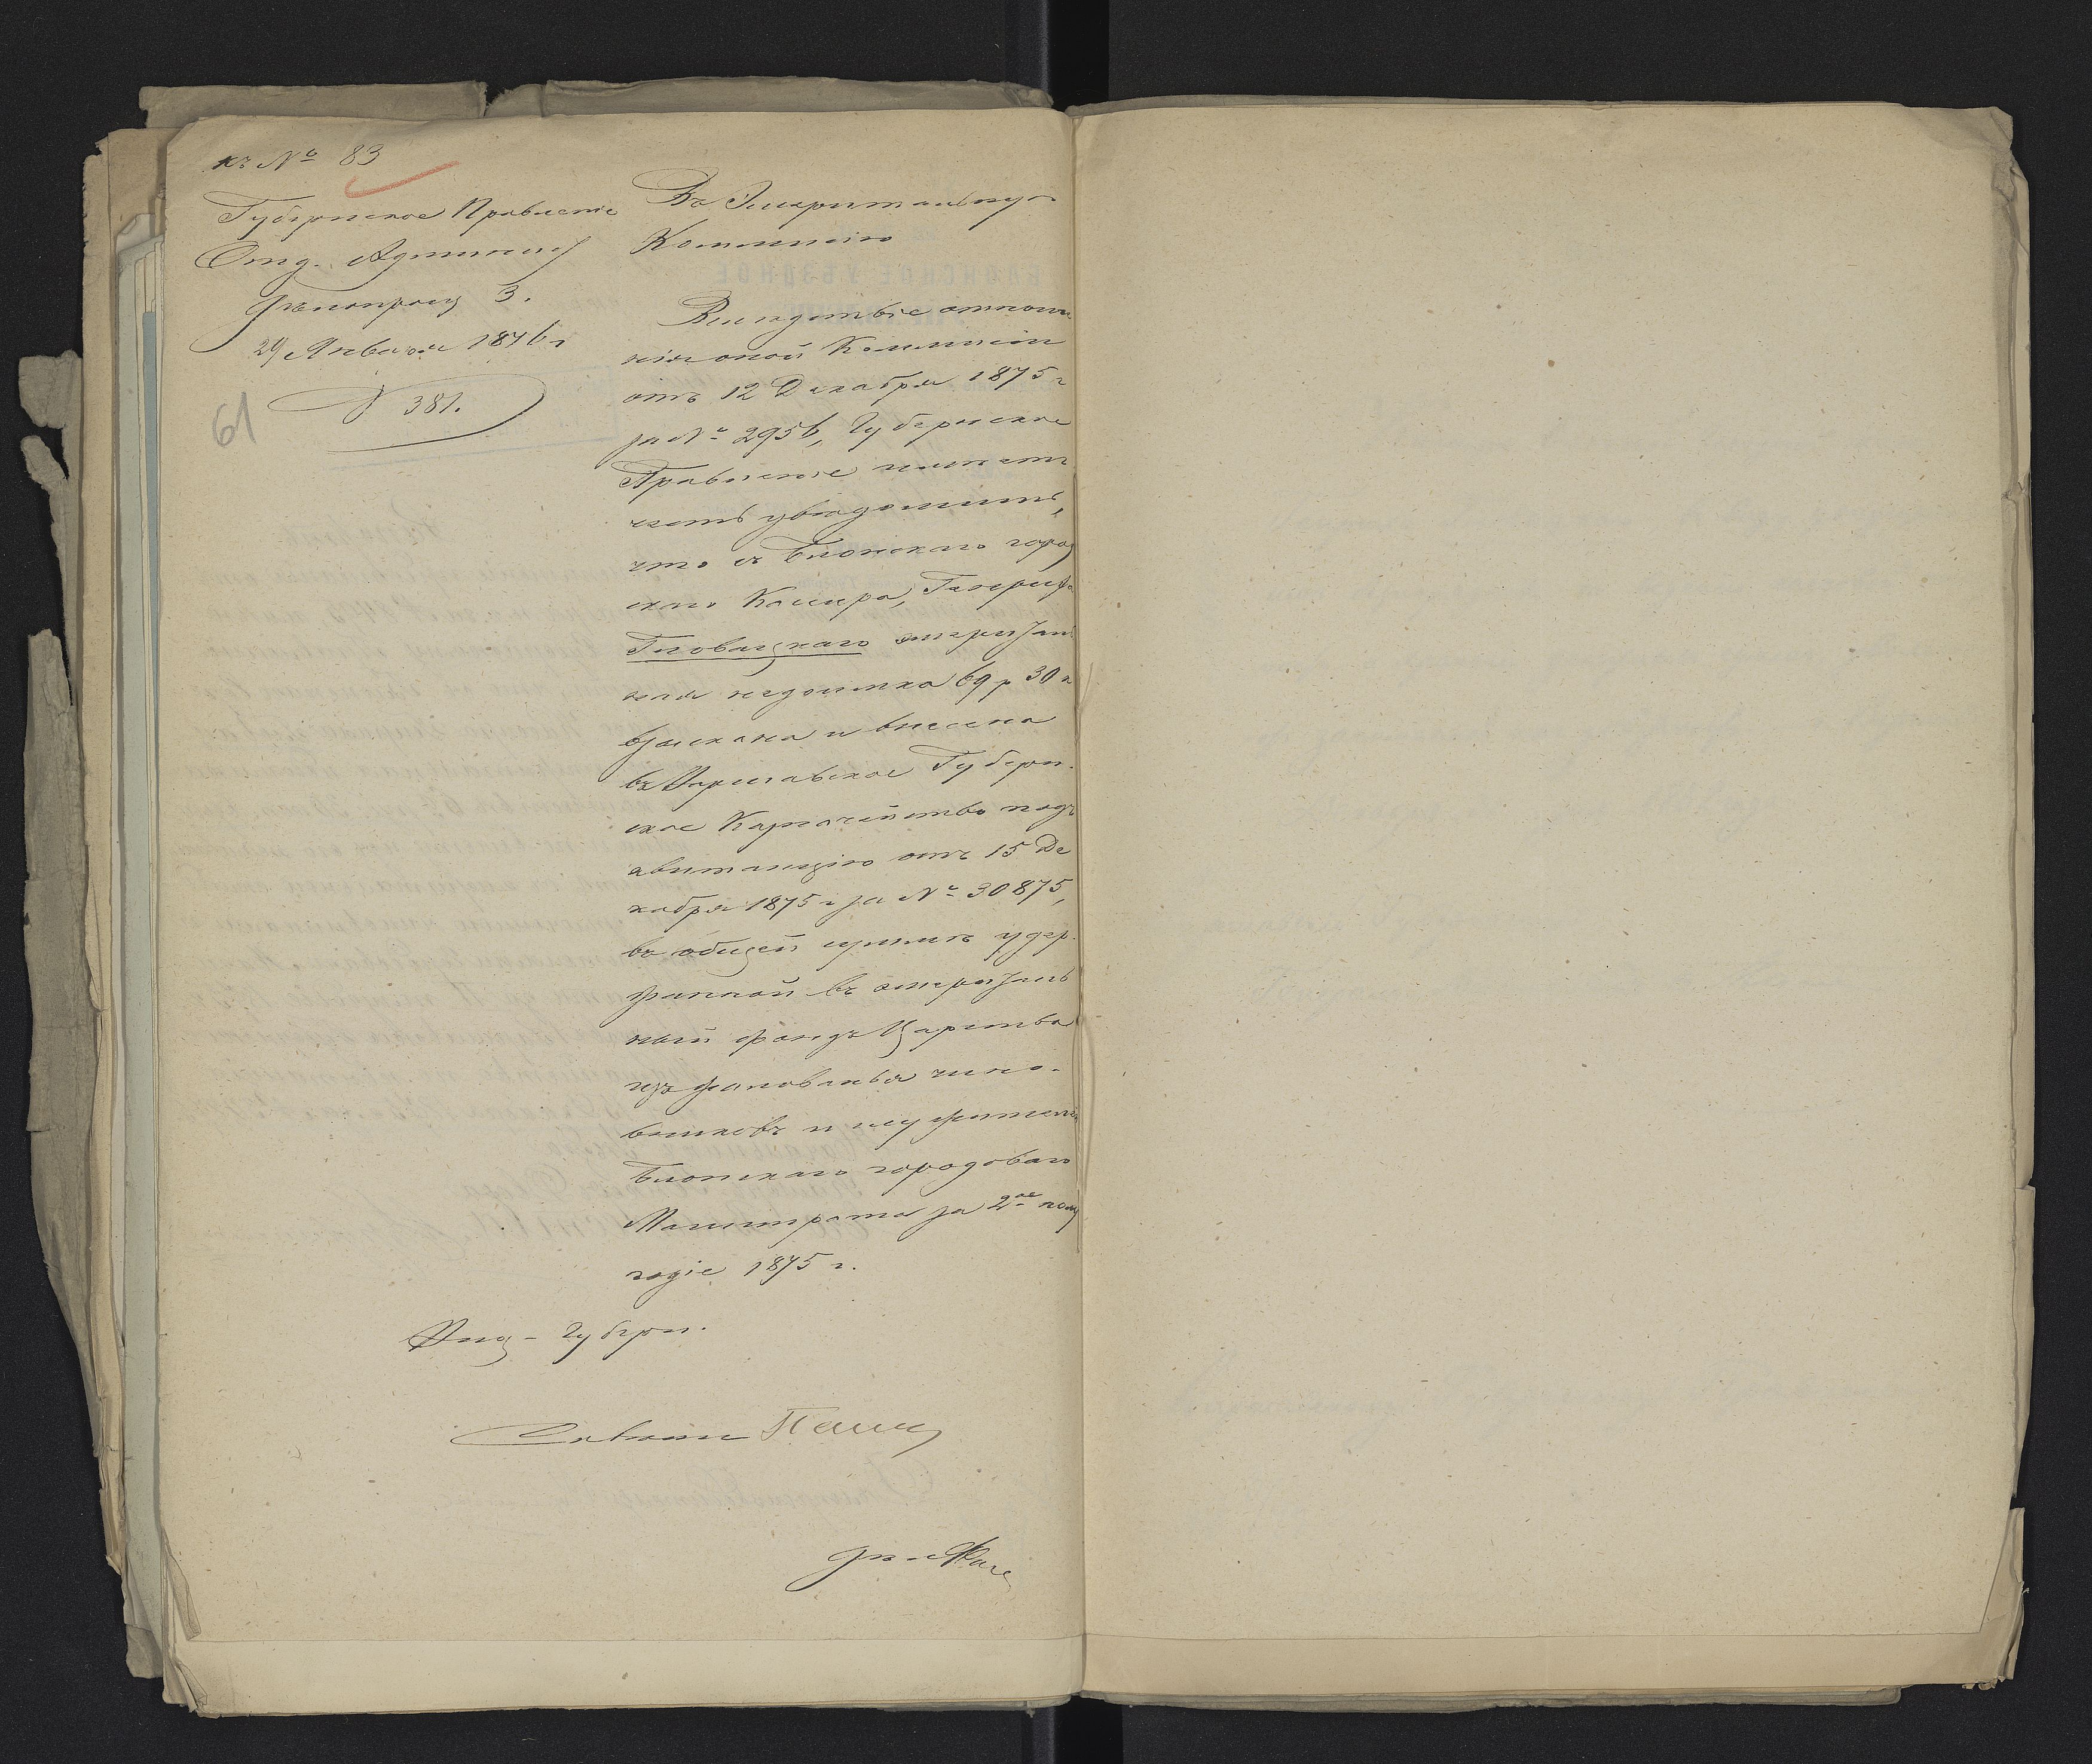 къ № 83
Губернское Правленіе
Отд. Админис
Дѣлопроиз 3.
29 Января 1876 г
№ 381.
61
Въ Эмеритальную
Коммисію
Вслѣдствіе отноше
нія оной Коммисіи
отъ 12 Декабря 1875 г
за № 2956, Губернское
Правленіе имѣетъ
честь увѣдомить,
что съ Блонскаго город
скаго Кассира, Генриха
Гловацкаго эмериталь
ная недоимка 69 р 30 к
взыскана и внесена
въ Варшавское Губерн.
ское Казначейство подъ
квитанцію отъ 15 Де
кабря 1875 г за № 30875,
въ общей суммѣ удер
жанной въ эмериталь
ный фондъ Царства
изъ жалованья чино-
вниковъ и служителей
Блонскаго городоваго
Магистрата за 2ое полу
годіе 1875 г.
Виц-Губерн.